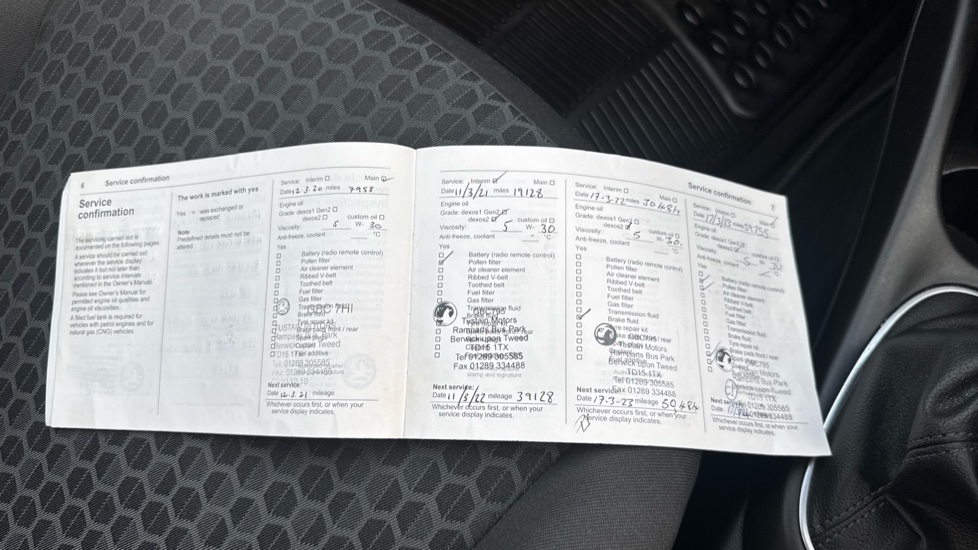 6 Service confirmation
Service
confirmation
The servicing carried out is
documented on the following pages.
A service should be carried out
whenever the service display
indicates it but not later than
according to service intervals
mentioned in the Owner's Manual.
Please see Owner's Manual for
permitted engine oil qualities and
engine oil viscosities.
A filled fuel tank is required for
vehicles with petrol engines and for
natural gas (CNG) vehicles.
The work is marked with yes
Yes → was exchanged or
replaced
Note
Predefined details must not be
altered.
Service: Interim Main
Date 12.3.20 miles 7958
Engine oil
Grade: dexos1 Gen2
dexos2 custom oil
Viscosity: 5 W- 30
Anti-freeze, coolant °C
Yes
Battery (radio remote control)
Pollen filter
Air cleaner element
Ribbed V-belt
Toothed belt
Fuel filter
Gas filter
Next service:
Date 12.3.21 mileage
Whichever occurs first, or when your
service display indicates.
Service: Interim Main
Date 11/3/21 miles 19128
Engine oil
Grade: dexos1 Gen2
dexos2 custom oil
Viscosity: 5 W- 30
Anti-freeze, coolant °C
Yes
Battery (radio remote control)
Pollen filter
Air cleaner element
Ribbed V-belt
Toothed belt
Fuel filter
Gas filter
Transmission fluid
Tustain Motors
Ramparts Bus Park
Berwick upon Tweed
TD15 1TX
Tel 01289 305585
Fax 01289 334488
stamp and signature
Next service:
Date 11/3/22 mileage 39128
Whichever occurs first, or when your
service display indicates.
Service: Interim Main
Date 17-3-22 miles 30484
Engine oil
Grade: dexos1 Gen2
dexos2 custom oil
Viscosity: 5 W- 30
Anti-freeze, coolant °C
Yes
Battery (radio remote control)
Pollen filter
Air cleaner element
Ribbed V-belt
Toothed belt
Fuel filter
Gas filter
Transmission fluid
Brake fluid
Tyre repair kit
Tustain Motors
Ramparts Bus Park
Berwick upon Tweed
TD15 1TX
Tel 01289 305585
Fax 01289 334488
Next service:
Date 17-3-23 mileage 50484
Whichever occurs first, or when your
service display indicates.
Service confirmation 7
Service: Interim Main
Date 17/3/23
Engine oil
Grade: dexos1 Gen2
dexos2 custom oil
Viscosity: 5 W- 30
Anti-freeze, coolant °C
Yes
Battery (radio remote control)
Pollen filter
Air cleaner element
Ribbed V-belt
Toothed belt
Fuel filter
Gas filter
Transmission fluid
Brake fluid
Tyre repair kit
Brake pads front / rear
Next service:
Date
Whichever occurs first, or when your
service display indicates.